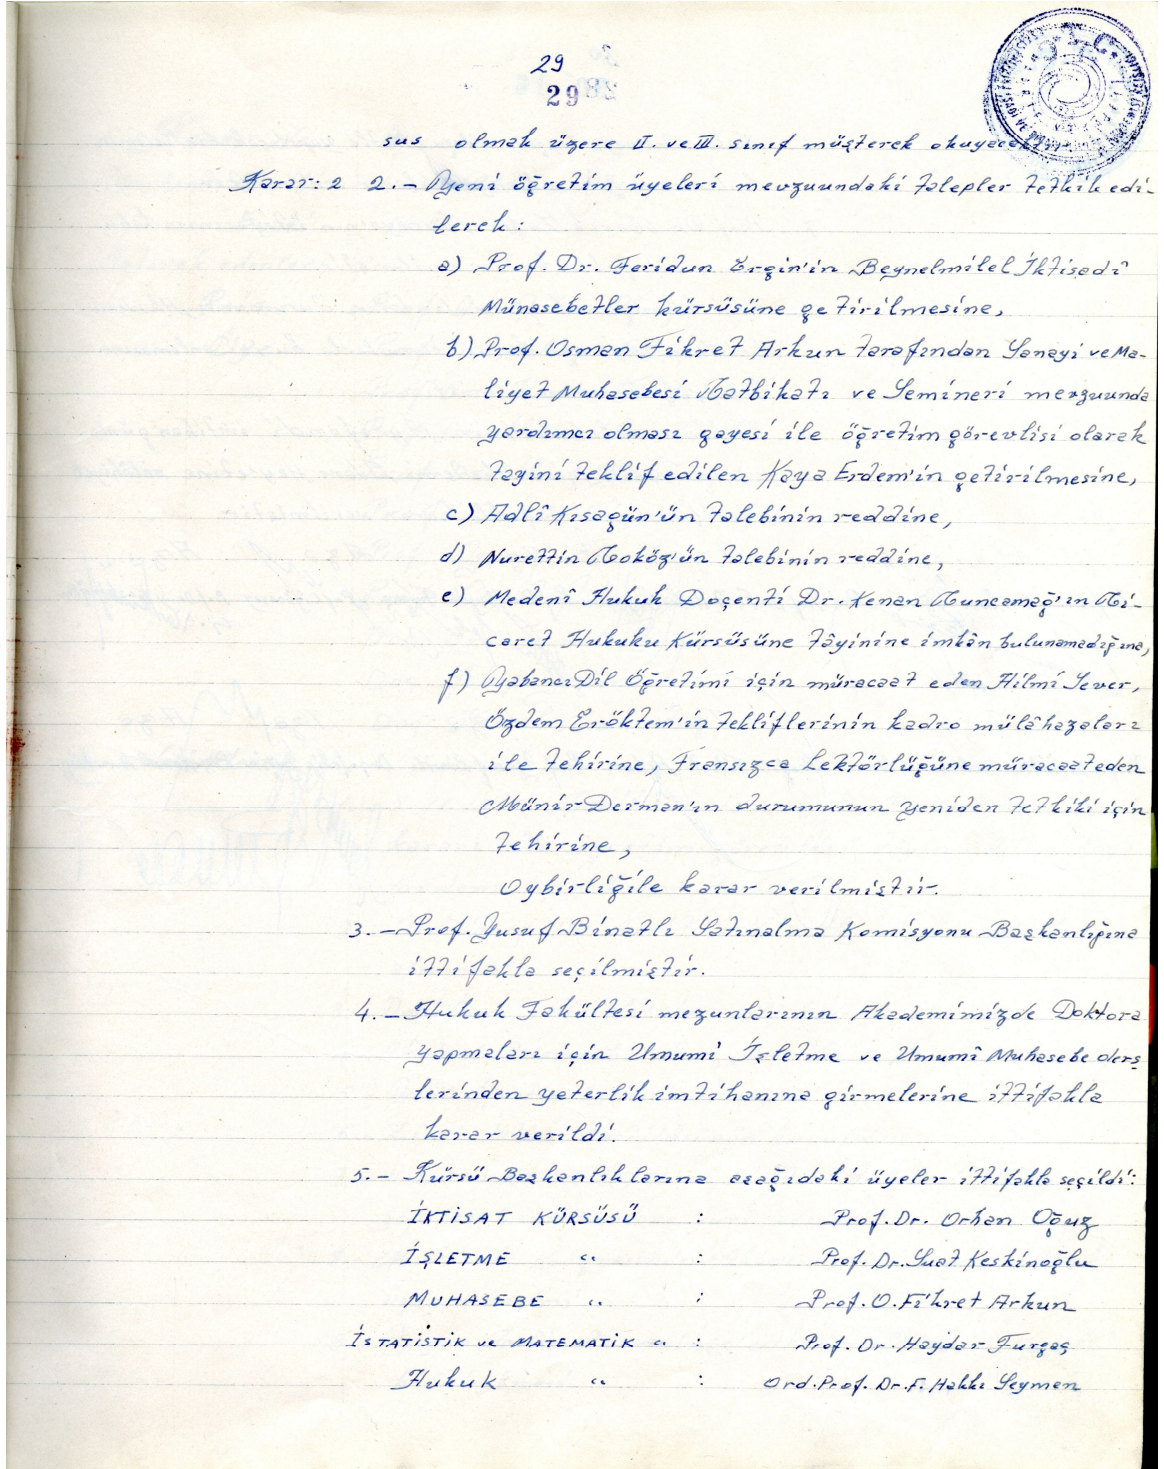 29
29
sus olmak üzere II. ve III. sınıf müşterek okuyacak
Karar: 2 2.- Yeni öğretim üyeleri mevzuundaki talepler tetkik edi-
lerek:
a) Prof. Dr. Feridun Ergin'in Beynelmilel İktisadî
Münasebetler kürsüsüne getirilmesine,
b) Prof. Osman Fikret Arkun tarafından Sanayi ve Ma-
liyet Muhasebesi Tatbikatı ve Semineri mevzuunda
yardımcı olması gayesi ile öğretim görevlisi olarak
tayini teklif edilen Kaya Erdem'in getirilmesine,
c) Adlî Kısagün'ün talebinin reddine,
d) Nurettin Toköz'ün talebinin reddine,
e) Medenî Hukuk Doçenti Dr. Kenan Tunçomağ'ın Ti-
caret Hukuku Kürsüsüne tâyinine imkân bulunamadığına,
f) Yabancı Dil Öğretimi için müracaat eden Hilmi Sever,
Özdem Eröktem'in tekliflerinin kadro mülâhazaları
ile tehirine, Fransızca Lektörlüğüne müracaat eden
Münir Derman'ın durumunun yeniden tetkiki için
tehirine,
Oybirliğile karar verilmiştir.
3.- Prof. Yusuf Binatlı Satınalma Komisyonu Başkanlığına
ittifakla seçilmiştir.
4.- Hukuk Fakültesi mezunlarının Akademimizde Doktora
yapmaları için Umumî İşletme ve Umumî Muhasebe ders
lerinden yeterlik imtihanına girmelerine ittifakla
karar verildi.
5.- Kürsü Başkanlıklarına aşağıdaki üyeler ittifakla seçildi:
İKTİSAT KÜRSÜSÜ : Prof. Dr. Orhan Oğuz
İŞLETME " : Prof. Dr. Suat Keskinoğlu
MUHASEBE " : Prof. O. Fikret Arkun
İSTATİSTİK ve MATEMATİK " : Prof. Dr. Haydar Furgaç
Hukuk " : Ord. Prof. Dr. F. Hakkı Seymen